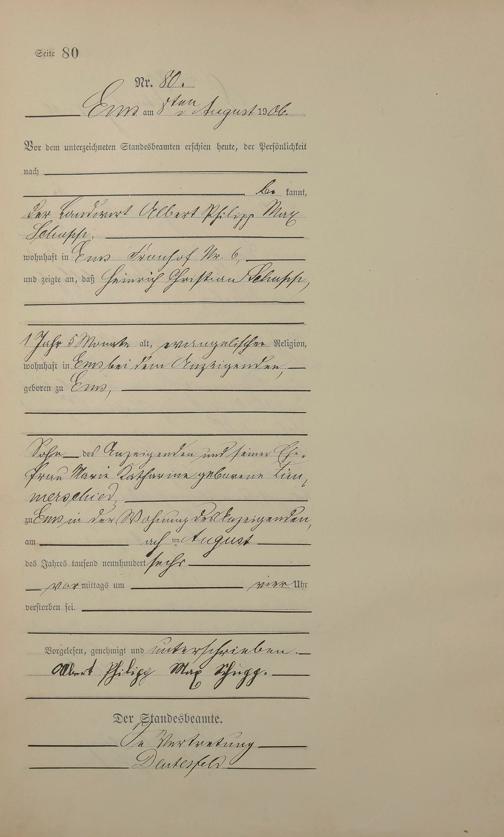 Seite 80
Nr. 80.
Ems am 8ten August 1906.
Vor dem unterzeichneten Standesbeamten erschien heute, der Persönlichkeit
nach
be kannt,
der Landwirt Albert Philipp Max
Schupp.
wohnhaft in Ems Fronhof Nr. 6,
und zeigte an, daß Heinrich Christian Schupp,
1 Jahr 5 Monate alt, evangelischer Religion,
wohnhaft in Ems bei dem Anzeigenden,
geboren zu Ems,
Sohn des Anzeigenden und seiner Ehe-
frau Marie Katharine geborene
zu Ems in der Wohnung des Anzeigenden,
am acht ten August
des Jahres tausend neunhundert sechs
vor mittags um vier Uhr
verstorben sei.
Vorgelesen, genehmigt und unterschrieben.
Albert Philipp Max Schupp.
Der Standesbeamte.
In Vertretung